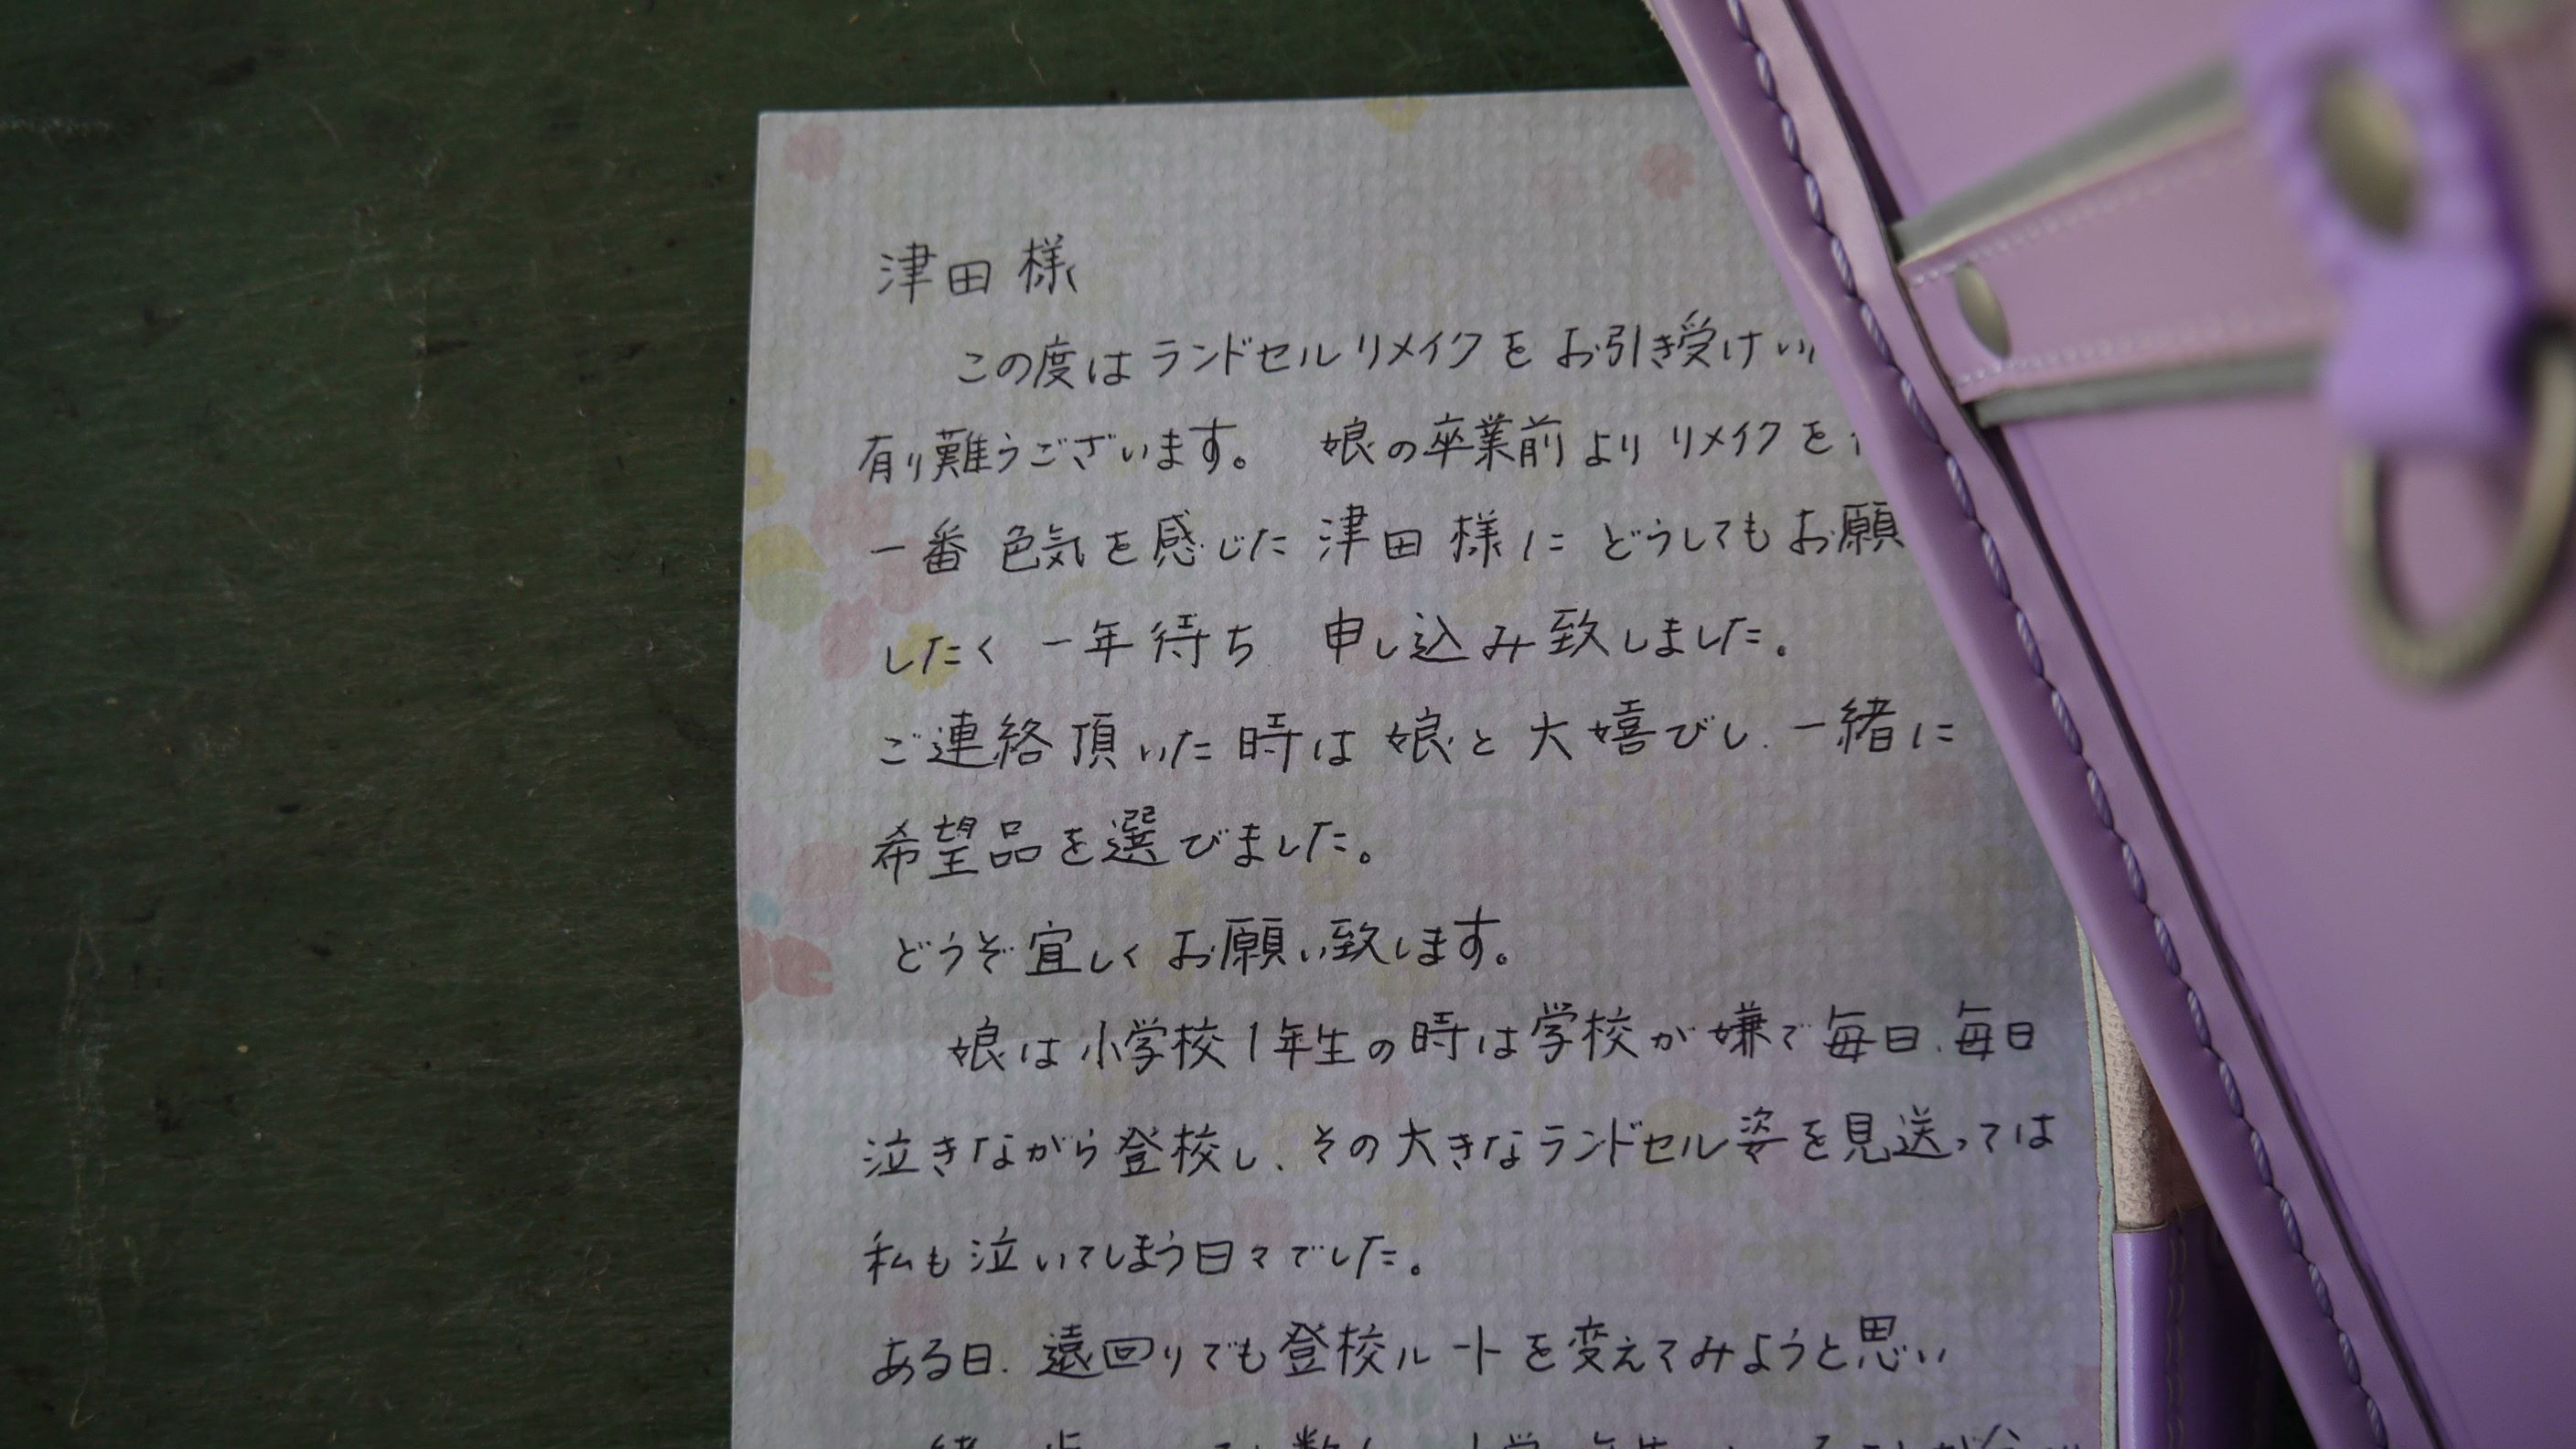 津田様
この度はランドセルリメイクをお引き受けい
有り難うございます。 娘の卒業前よりリメイクを
一番色気を感じた津田様にどうしてもお願
したく一年待ち 申し込み致しました。
ご連絡頂いた時は娘と大嬉びし、一緒に
希望品を選びました。
どうぞ宜しくお願い致します。
娘は小学校1年生の時は学校が嫌で毎日、毎日
泣きながら登校し、その大きなランドセル姿を見送っては
私も泣いてしまう日々でした。
ある日、遠回りでも登校ルートを変えてみようと思い